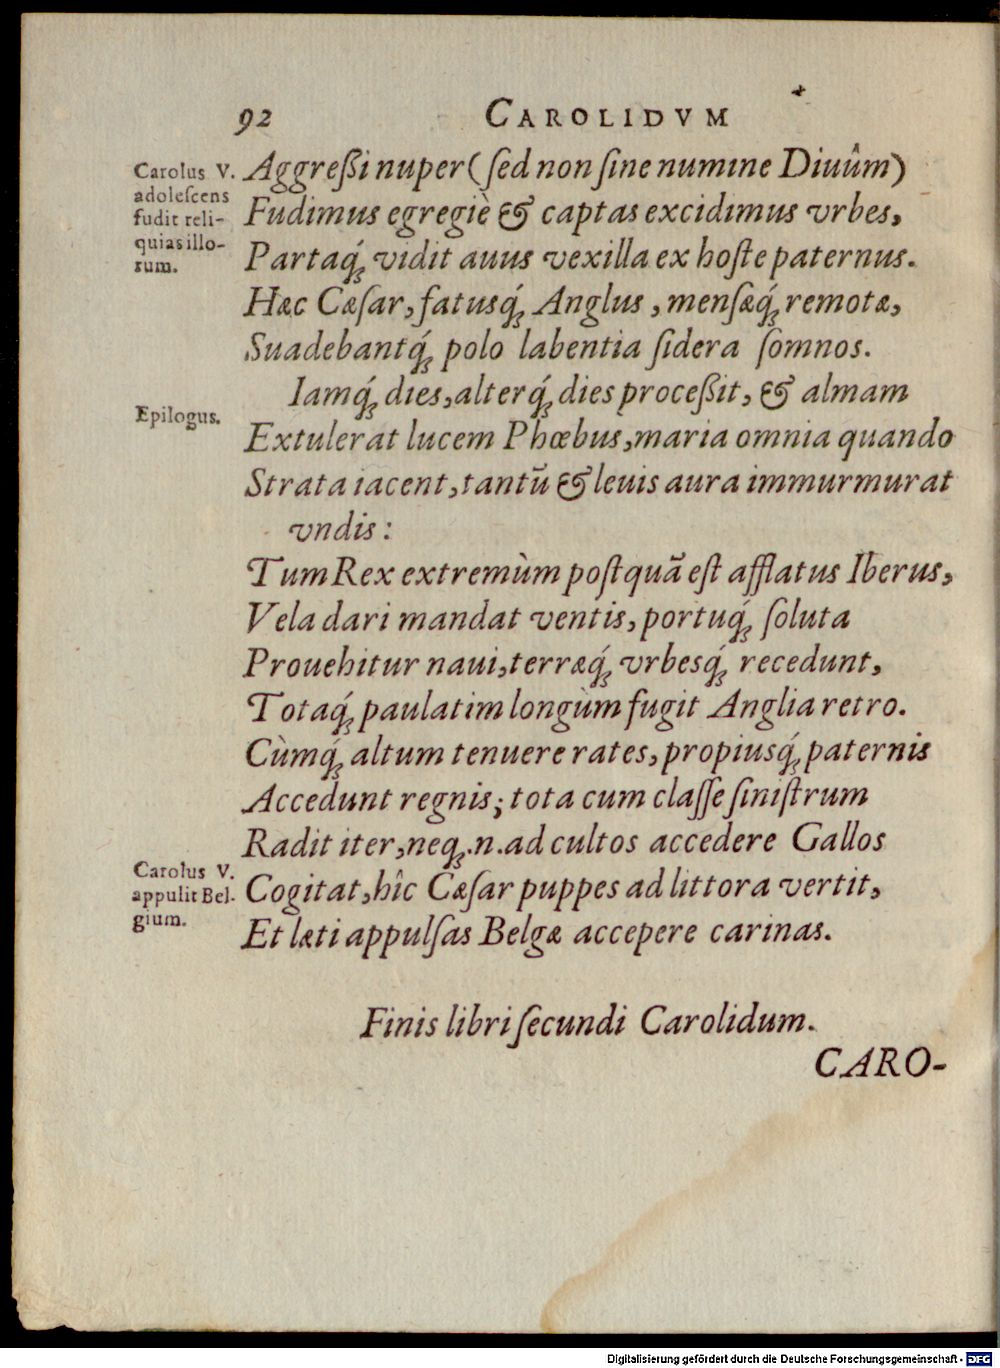 92 CAROLIDVM
Carolus V.
adolescens
fudit reli-
quias illo-
rum.
Aggreßi nuper (ſed non ſine numine Diuûm)
Fudimus egregiè & captas excidimus vrbes,
Partaq́; vidit auus vexilla ex hoſte paternus.
Hæc Cæſar, fatusq́; Anglus, menſæq́; remotæ,
Suadebantq́; polo labentia ſidera ſomnos.
Epilogus.
Iamq́; dies, alterq́; dies proceßit, & almam
Extulerat lucem Phœbus, maria omnia quando
Strata iacent, tantū & leuis aura immurmurat
vndis:
Tum Rex extremùm poſtquā eſt afflatus Iberus,
Vela dari mandat ventis, portuq́; ſoluta
Prouehitur naui, terræq́; vrbesq́; recedunt,
Totaq́; paulatim longùm fugit Anglia retro.
Cùmq́; altum tenuere rates, propiusq́; paternis
Accedunt regnis; tota cum claſſe ſiniſtrum
Radit iter, neq;.n.ad cultos accedere Gallos
Carolus V.
appulit Bel-
gium.
Cogitat, hîc Cæſar puppes ad littora vertit,
Et læti appulſas Belgæ accepere carinas.
Finis libri ſecundi Carolidum.
CARO-
Digitalisierung gefördert durch die Deutsche Forschungsgemeinschaft - DFG